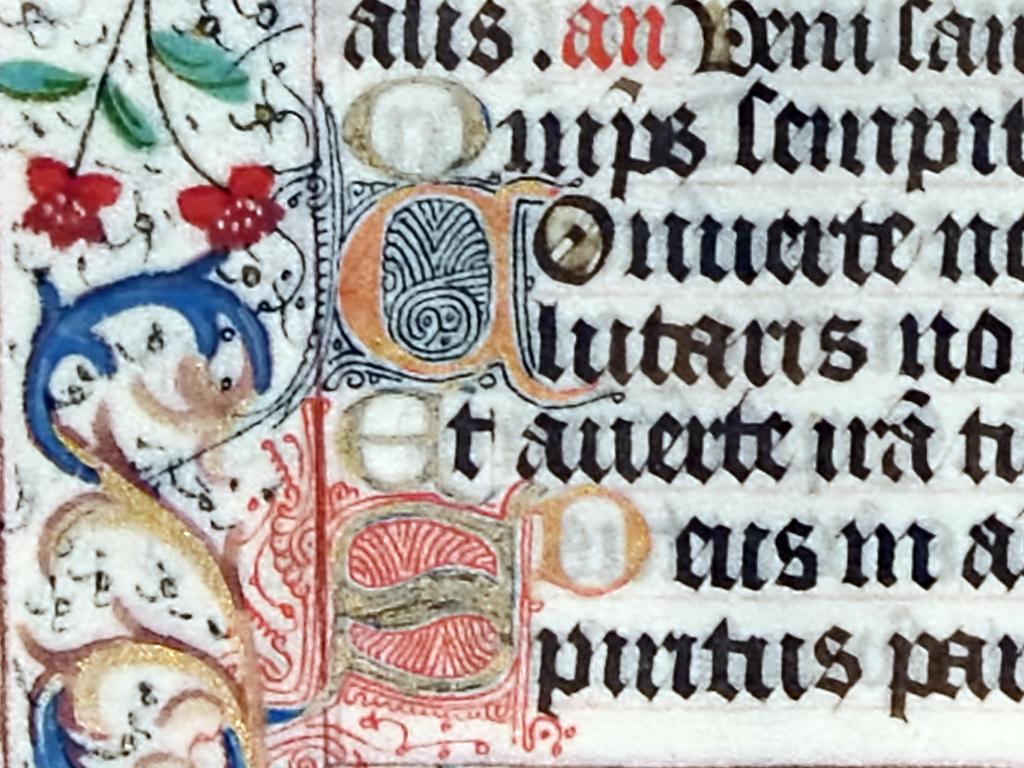 alis . an Veni san
Omīps sempit
COnuerte no
lutaris no
Et auerte irā tu
Deus in a
Spiritus par